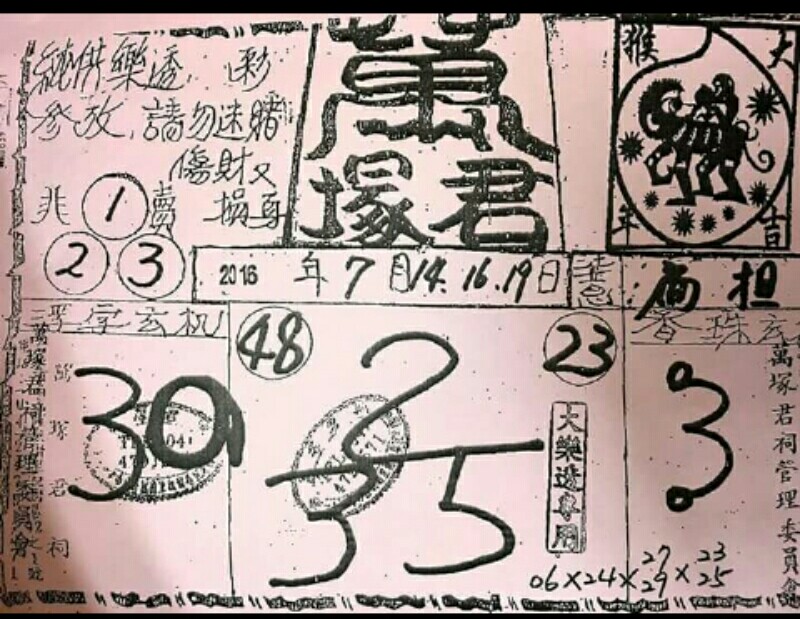 純供樂透 彩
參攷,請勿迷賭
傷財又
損身
非 1 賣
2 3
萬
塚君
猴 大
年 吉
2016 年 7 月 14. 16. 19 日
兩担
字玄机
香珠玄
48
23
30
2
35
3
大樂透專用
萬塚君祠管理委員會
萬塚君祠
萬塚君祠管理委員會
06×24×27×23
29 25